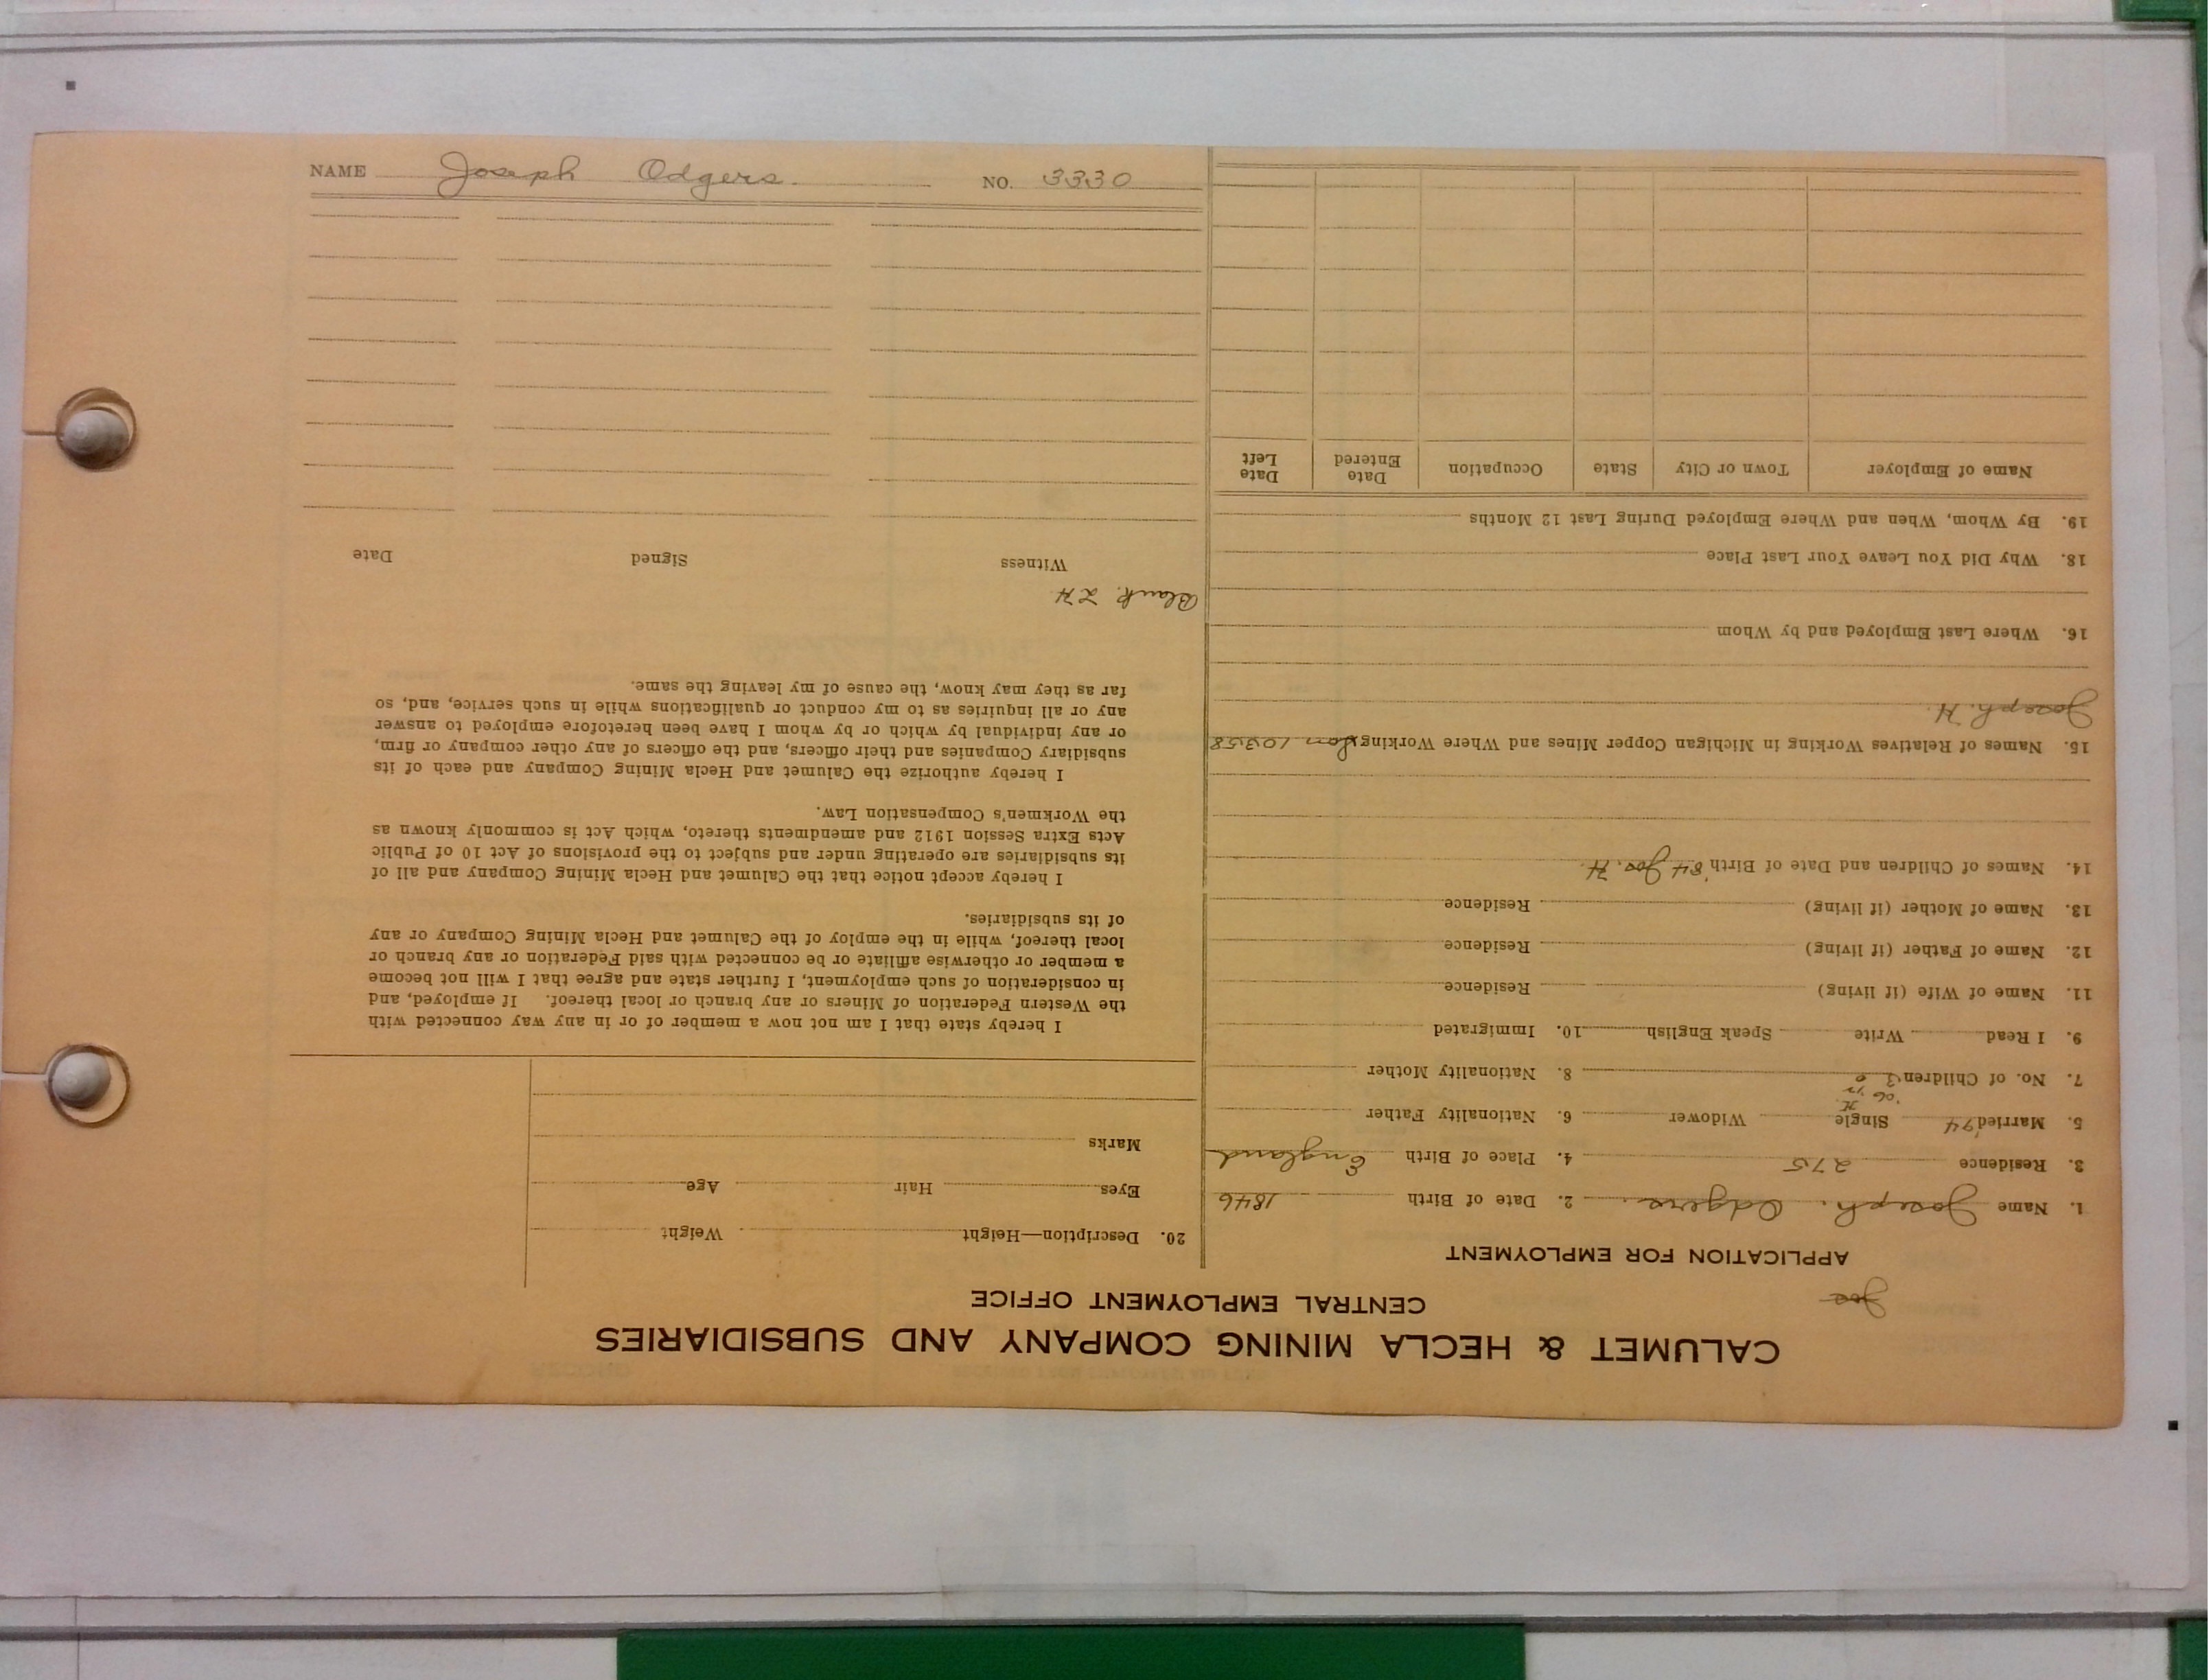 NAME Joseph Odgers. NO. 3330
CALUMET & HECLA MINING COMPANY AND SUBSIDIARIES
CENTRAL EMPLOYMENT OFFICE
Joe
APPLICATION FOR EMPLOYMENT
1. Name Joseph. Odgers. 2. Date of Birth 1846
3. Residence 275 4. Place of Birth England
5. Married '94 Single Widower 6. Nationality Father
'06
7. No. of Children 3 8. Nationality Mother
9. I Read Write Speak English 10. Immigrated
11. Name of Wife (if living) Residence
12. Name of Father (if living) Residence
13. Name of Mother (if living) Residence
14. Names of Children and Date of Birth '84 Jos. H.
15. Names of Relatives Working in Michigan Copper Mines and Where Working Son 10358
Joseph. H.
16. Where Last Employed and by Whom
18. Why Did You Leave Your Last Place
19. By Whom, When and Where Employed During Last 12 Months
Name of Employer Town or City State Occupation Date Entered Date Left
20. Description—Height Weight
Eyes Hair Age
Marks
I hereby state that I am not now a member of or in any way connected with
the Western Federation of Miners or any branch or local thereof. If employed, and
in consideration of such employment, I further state and agree that I will not become
a member or otherwise affiliate or be connected with said Federation or any branch or
local thereof, while in the employ of the Calumet and Hecla Mining Company or any
of its subsidiaries.
I hereby accept notice that the Calumet and Hecla Mining Company and all of
its subsidiaries are operating under and subject to the provisions of Act 10 of Public
Acts Extra Session 1912 and amendments thereto, which Act is commonly known as
the Workmen's Compensation Law.
I hereby authorize the Calumet and Hecla Mining Company and each of its
subsidiary Companies and their officers, and the officers of any other company or firm,
or any individual by which or by whom I have been heretofore employed to answer
any or all inquiries as to my conduct or qualifications while in such service, and, so
far as they may know, the cause of my leaving the same.
Blank
Witness Signed Date